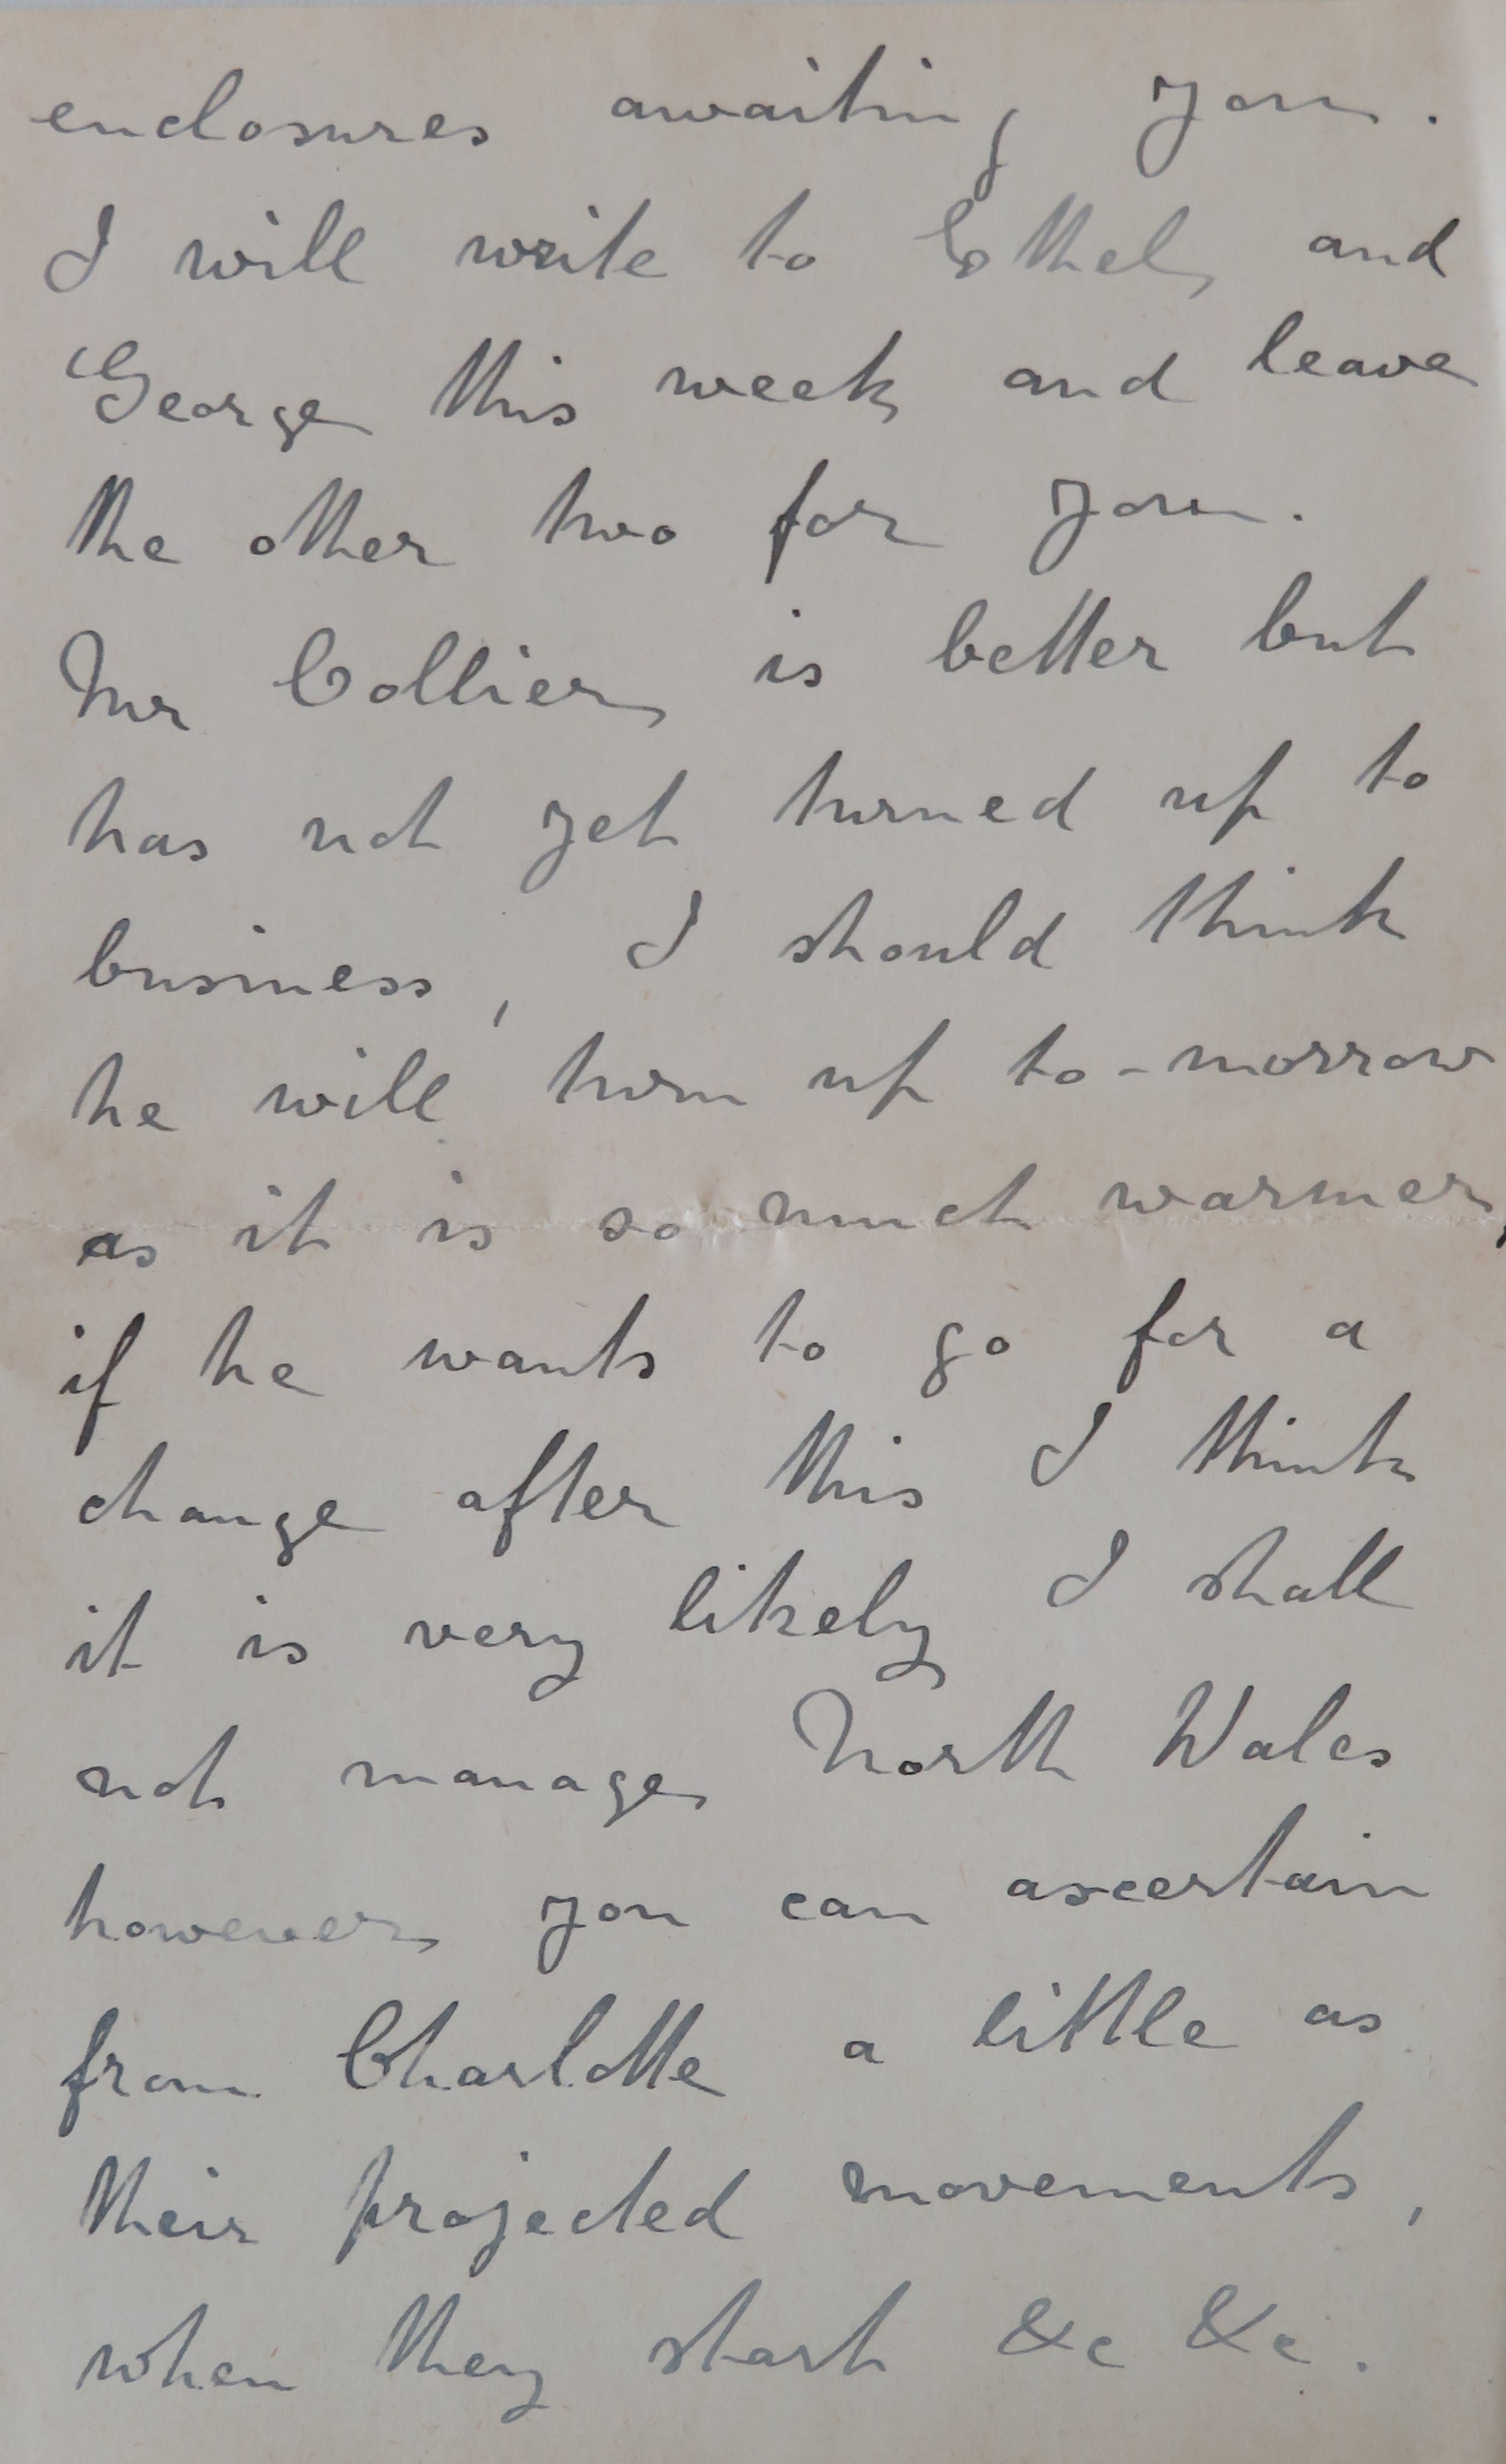 enclosures awaiting you.
I will write to Ethel and
George this week and leave
the other two for you.
Mr Collier is better but
has not yet turned up to
business, I should think
he will turn up to-morrow
as it is so much warmer,
if he wants to go for a
change after this I think
it is very likely I shall
not manage North Wales
however you can ascertain
from Charlotte a little as
their projected movements,
when they start &c &c.